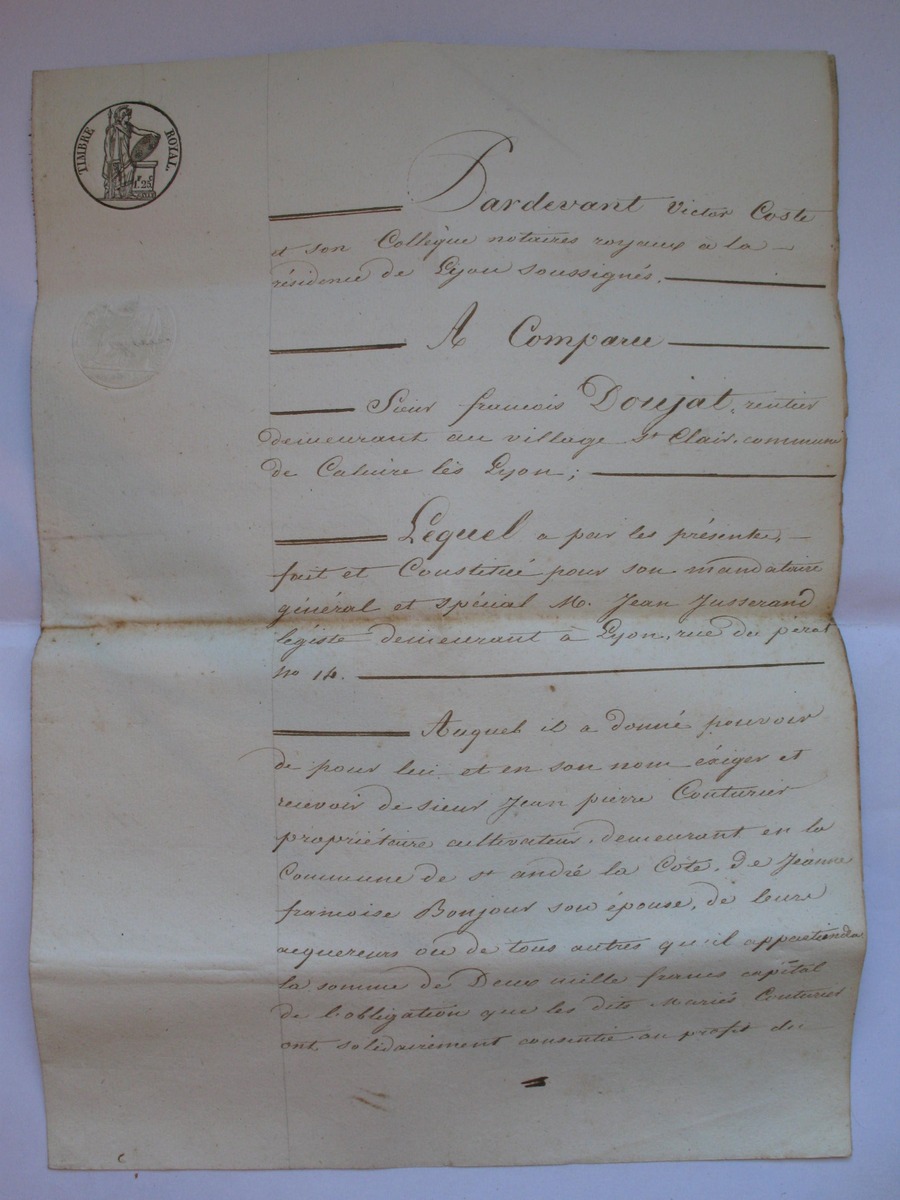 TIMBRE ROYAL
1F 25C
Pardevant Victor Coste
et son Collègue notaires royaux à la
résidence de Lyon soussignés.
A Comparu
Sieur françois Doujat, rentier
demeurant au village St Clair, commune
de Caluire lès Lyon ;
Lequel a par les présentes,
fait et Constitué pour son mandataire
général et spécial M. Jean Jusserand
légiste demeurant à Lyon, rue du pérat
no 14.
Auquel il a donné pouvoir
de pour lui et en son nom éxiger et
recevoir de sieur Jean pierre Couturier
propriétaire cultivateur, demeurant en la
Commune de st andré la Côte, de Jeanne
françoise Bonjour son épouse, de leurs
acquereurs ou de tous autres qu'il appartiendra
la somme de Deux mille francs capital
de l'obligation que les dits Mariés Couturier
ont solidairement consentie au profit du